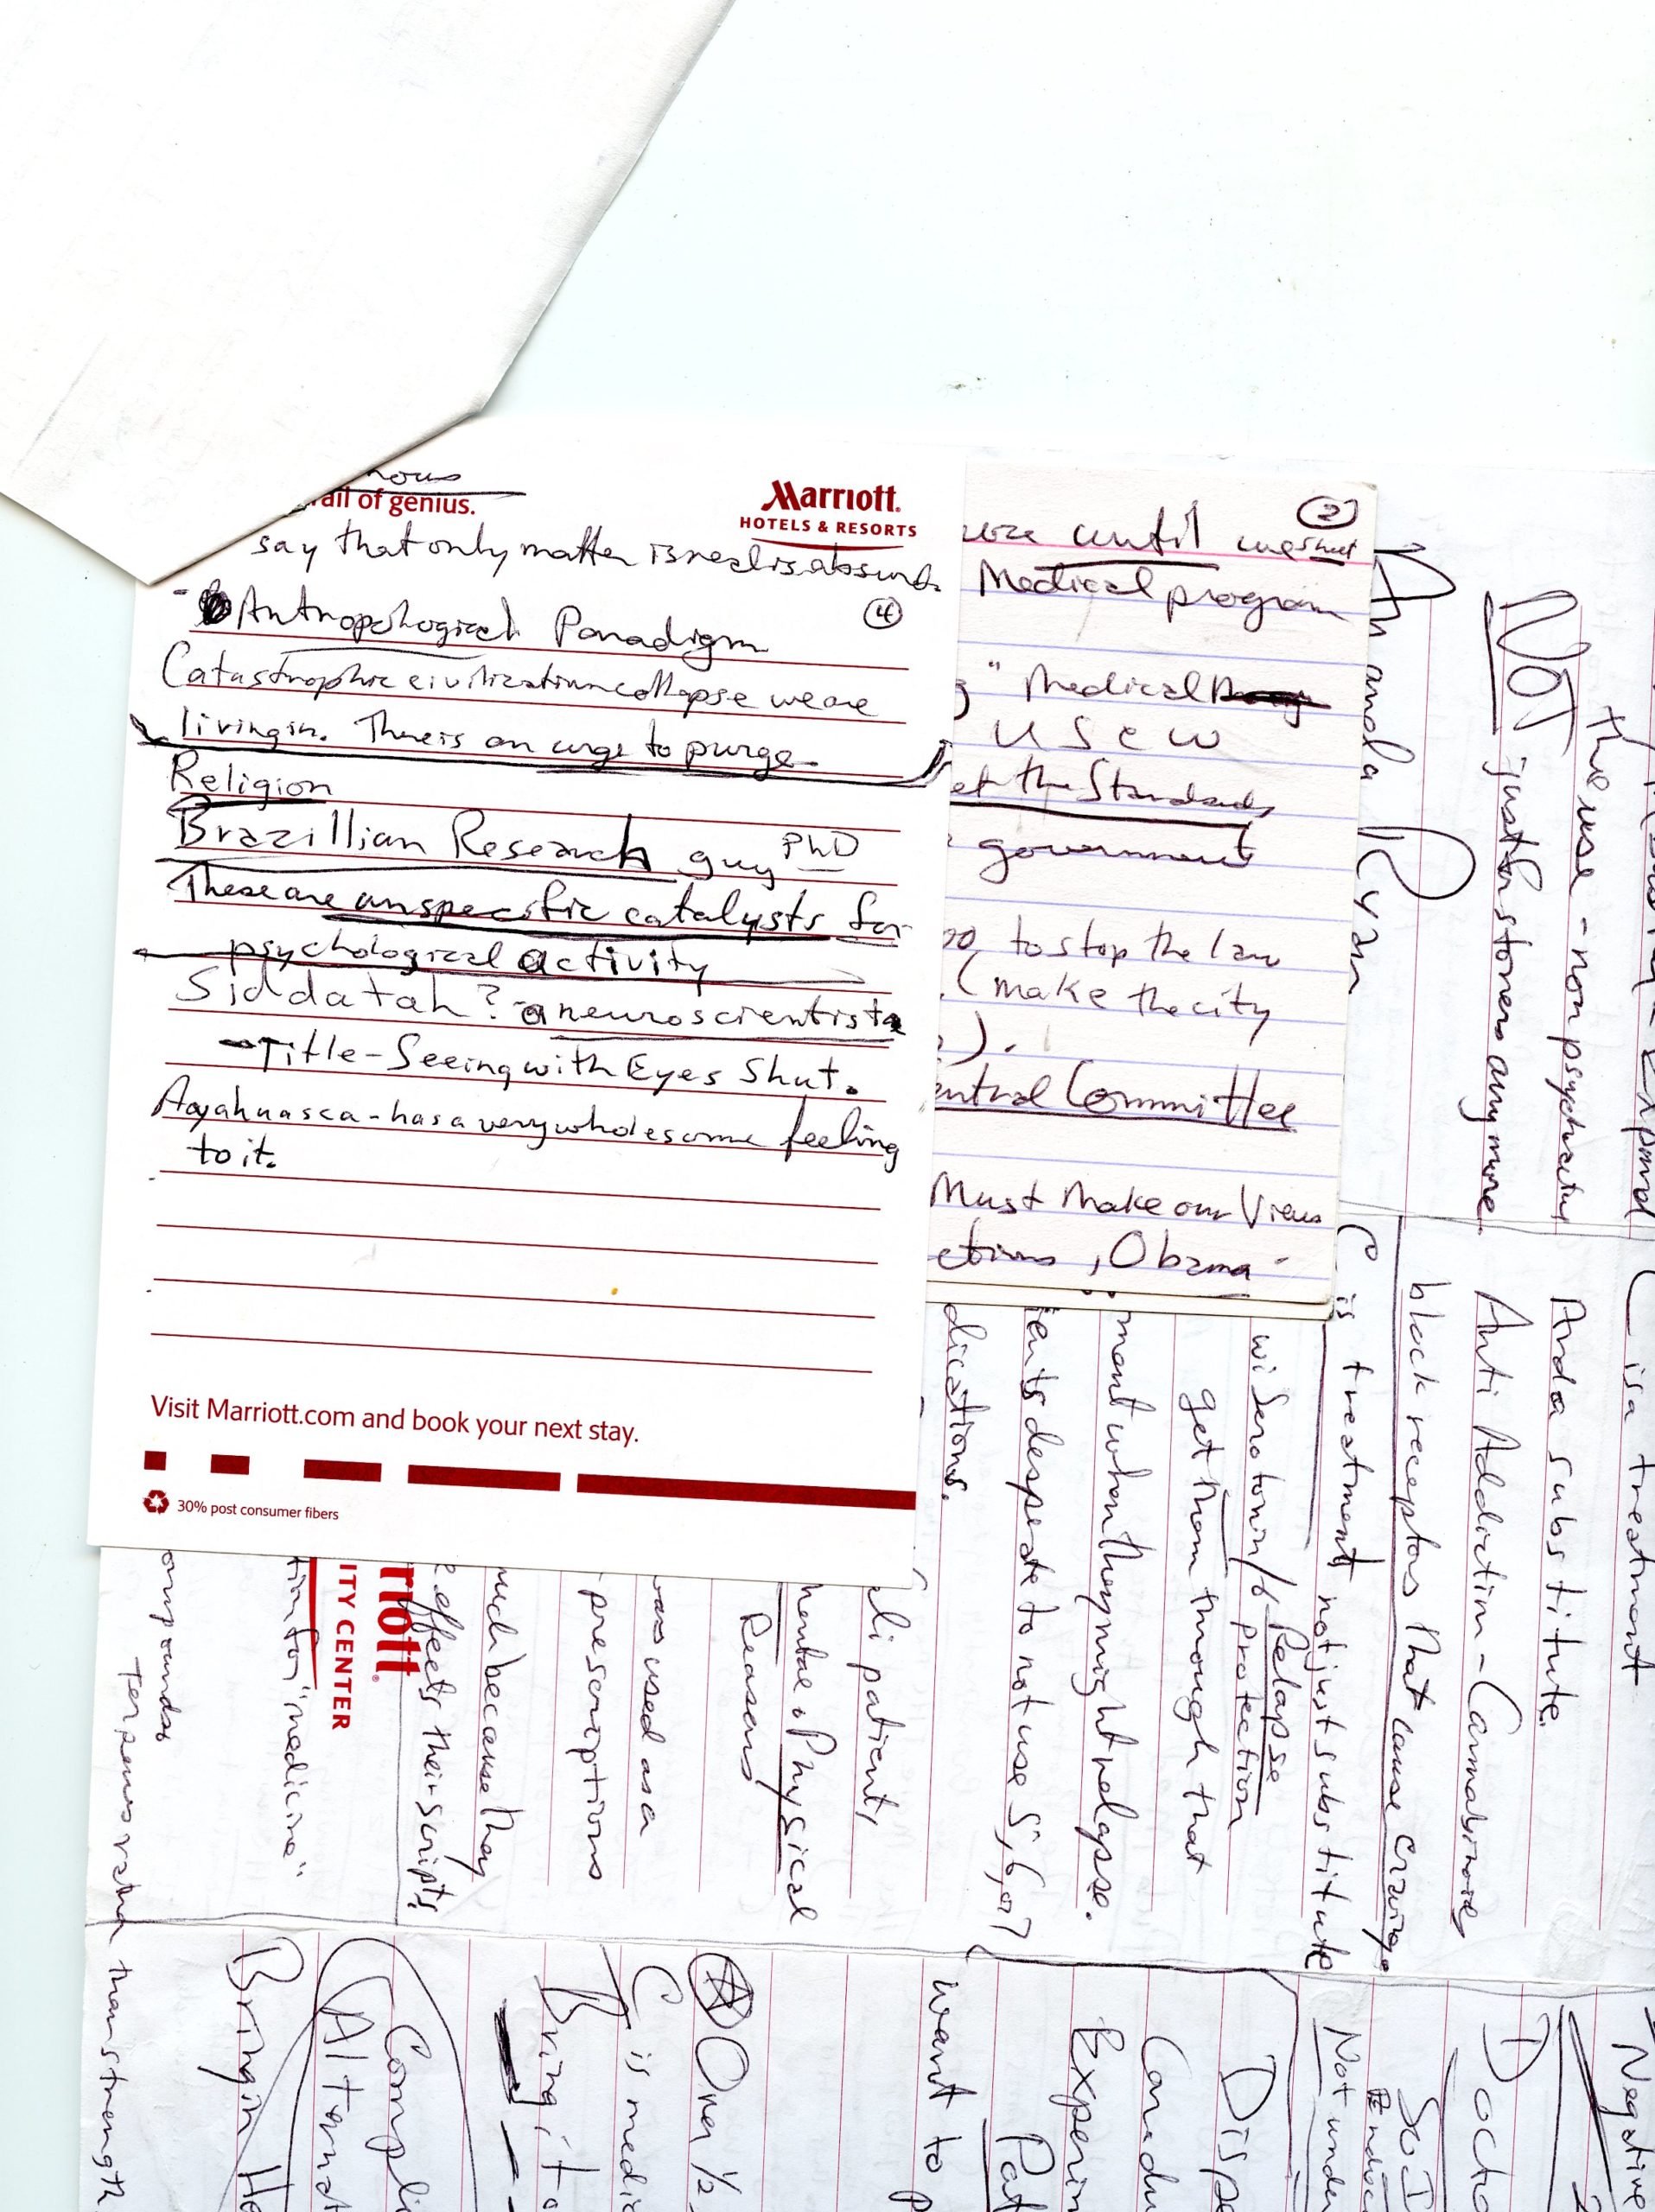 nous
rail of genius.
Marriott
HOTELS & RESORTS
say that only matter is real is absurd.
④
- Antropological Paradigm
Catastrophic civilization collapse we are
living in. There is an urge to purge
Religion
Brazillian Research guy PhD
These are unspecific catalysts for
psychological activity
Siddatah? - a neuroscientist
- Title - Seeing with Eyes Shut.
Aayahuasca - has a very wholesome feeling
to it.
Visit Marriott.com and book your next stay.
30% post consumer fibers
②
until
Medical program
" Medical
U S C W
et the Standards
government
to stop the law
(make the city
).
entral Committee
Must Make our Views
ctions, Obama
Amanda Ryan
NOT just for stoners anymore
the use - non psychoactive
C is a treatment
And a substitute.
Anti Addiction - Cannabinoids
block receptors that cause craving
C is treatment not just substitute
w/ Serotonin/b Relapse
protection
get them through that
moment when they might relapse.
ients desperate to not use 5, 6, or 7
dications.
li patient,
mental & Physical
Reasons
was used as a
prescriptions
much because they
effects their scripts
riott
ITY CENTER
tion for "medicine"
compounds
Terpenes rather than strength
Negative
Docto
Not under
Dispe
Condu
Experien
Pat
want to p
Over 1/2
C is medic
Bring it o
Compli
(Alternat
Bringin He